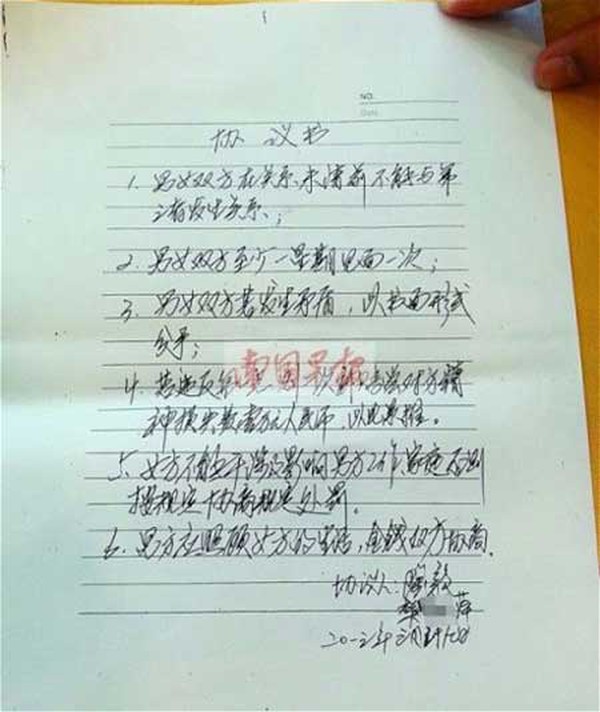 NO.
Date.
协议书
1、男女双方在关系未满前不能与第
三者发生关系;
2、男女双方至少一星期见面一次;
3、男女双方若发生矛盾,以书面形式
分手;
南国早报
4、若违反 对方精
神损失数 万元人民币,以此类推。
5、女方不能干涉及影响男方工作、家庭,否则
按规定协商规定处罚。
6、男方应照顾女方的生活,金钱双方协商。
协议人:
萍
二〇一 年